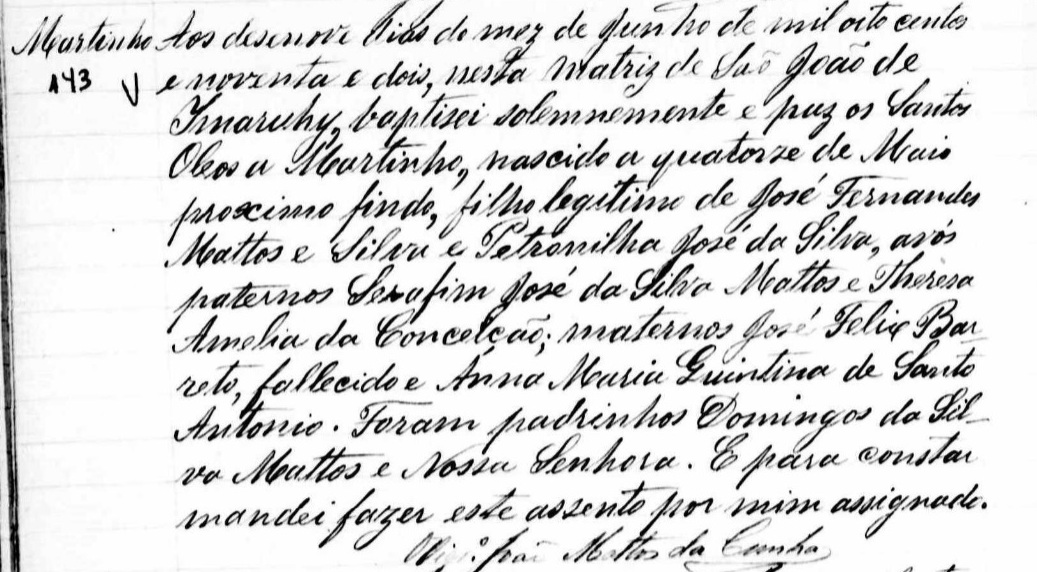 Martinho Aos desenove dias do mez de Junho de mil oito centos
143 e noventa e dois, nesta matriz de São João de
Imaruhy, baptisei solemnemente e puz os Santos
Oleos a Martinho, nascido a quatorze de Maio
proximo findo, filho legitimo de José Fernandes
Mattos e Silva e Petronilha José da Silva, avós
paternos Serafim José da Silva Mattos e Theresa
Amelia da Conceição; maternos José Felix Bar-
reto, fallecido e Anna Maria Quintina de Santo
Antonio. Foram padrinhos Domingos da Sil-
va Mattos e Nossa Senhora. E para constar
mandei fazer este assento por mim assignado.
João Mattos da Cunha